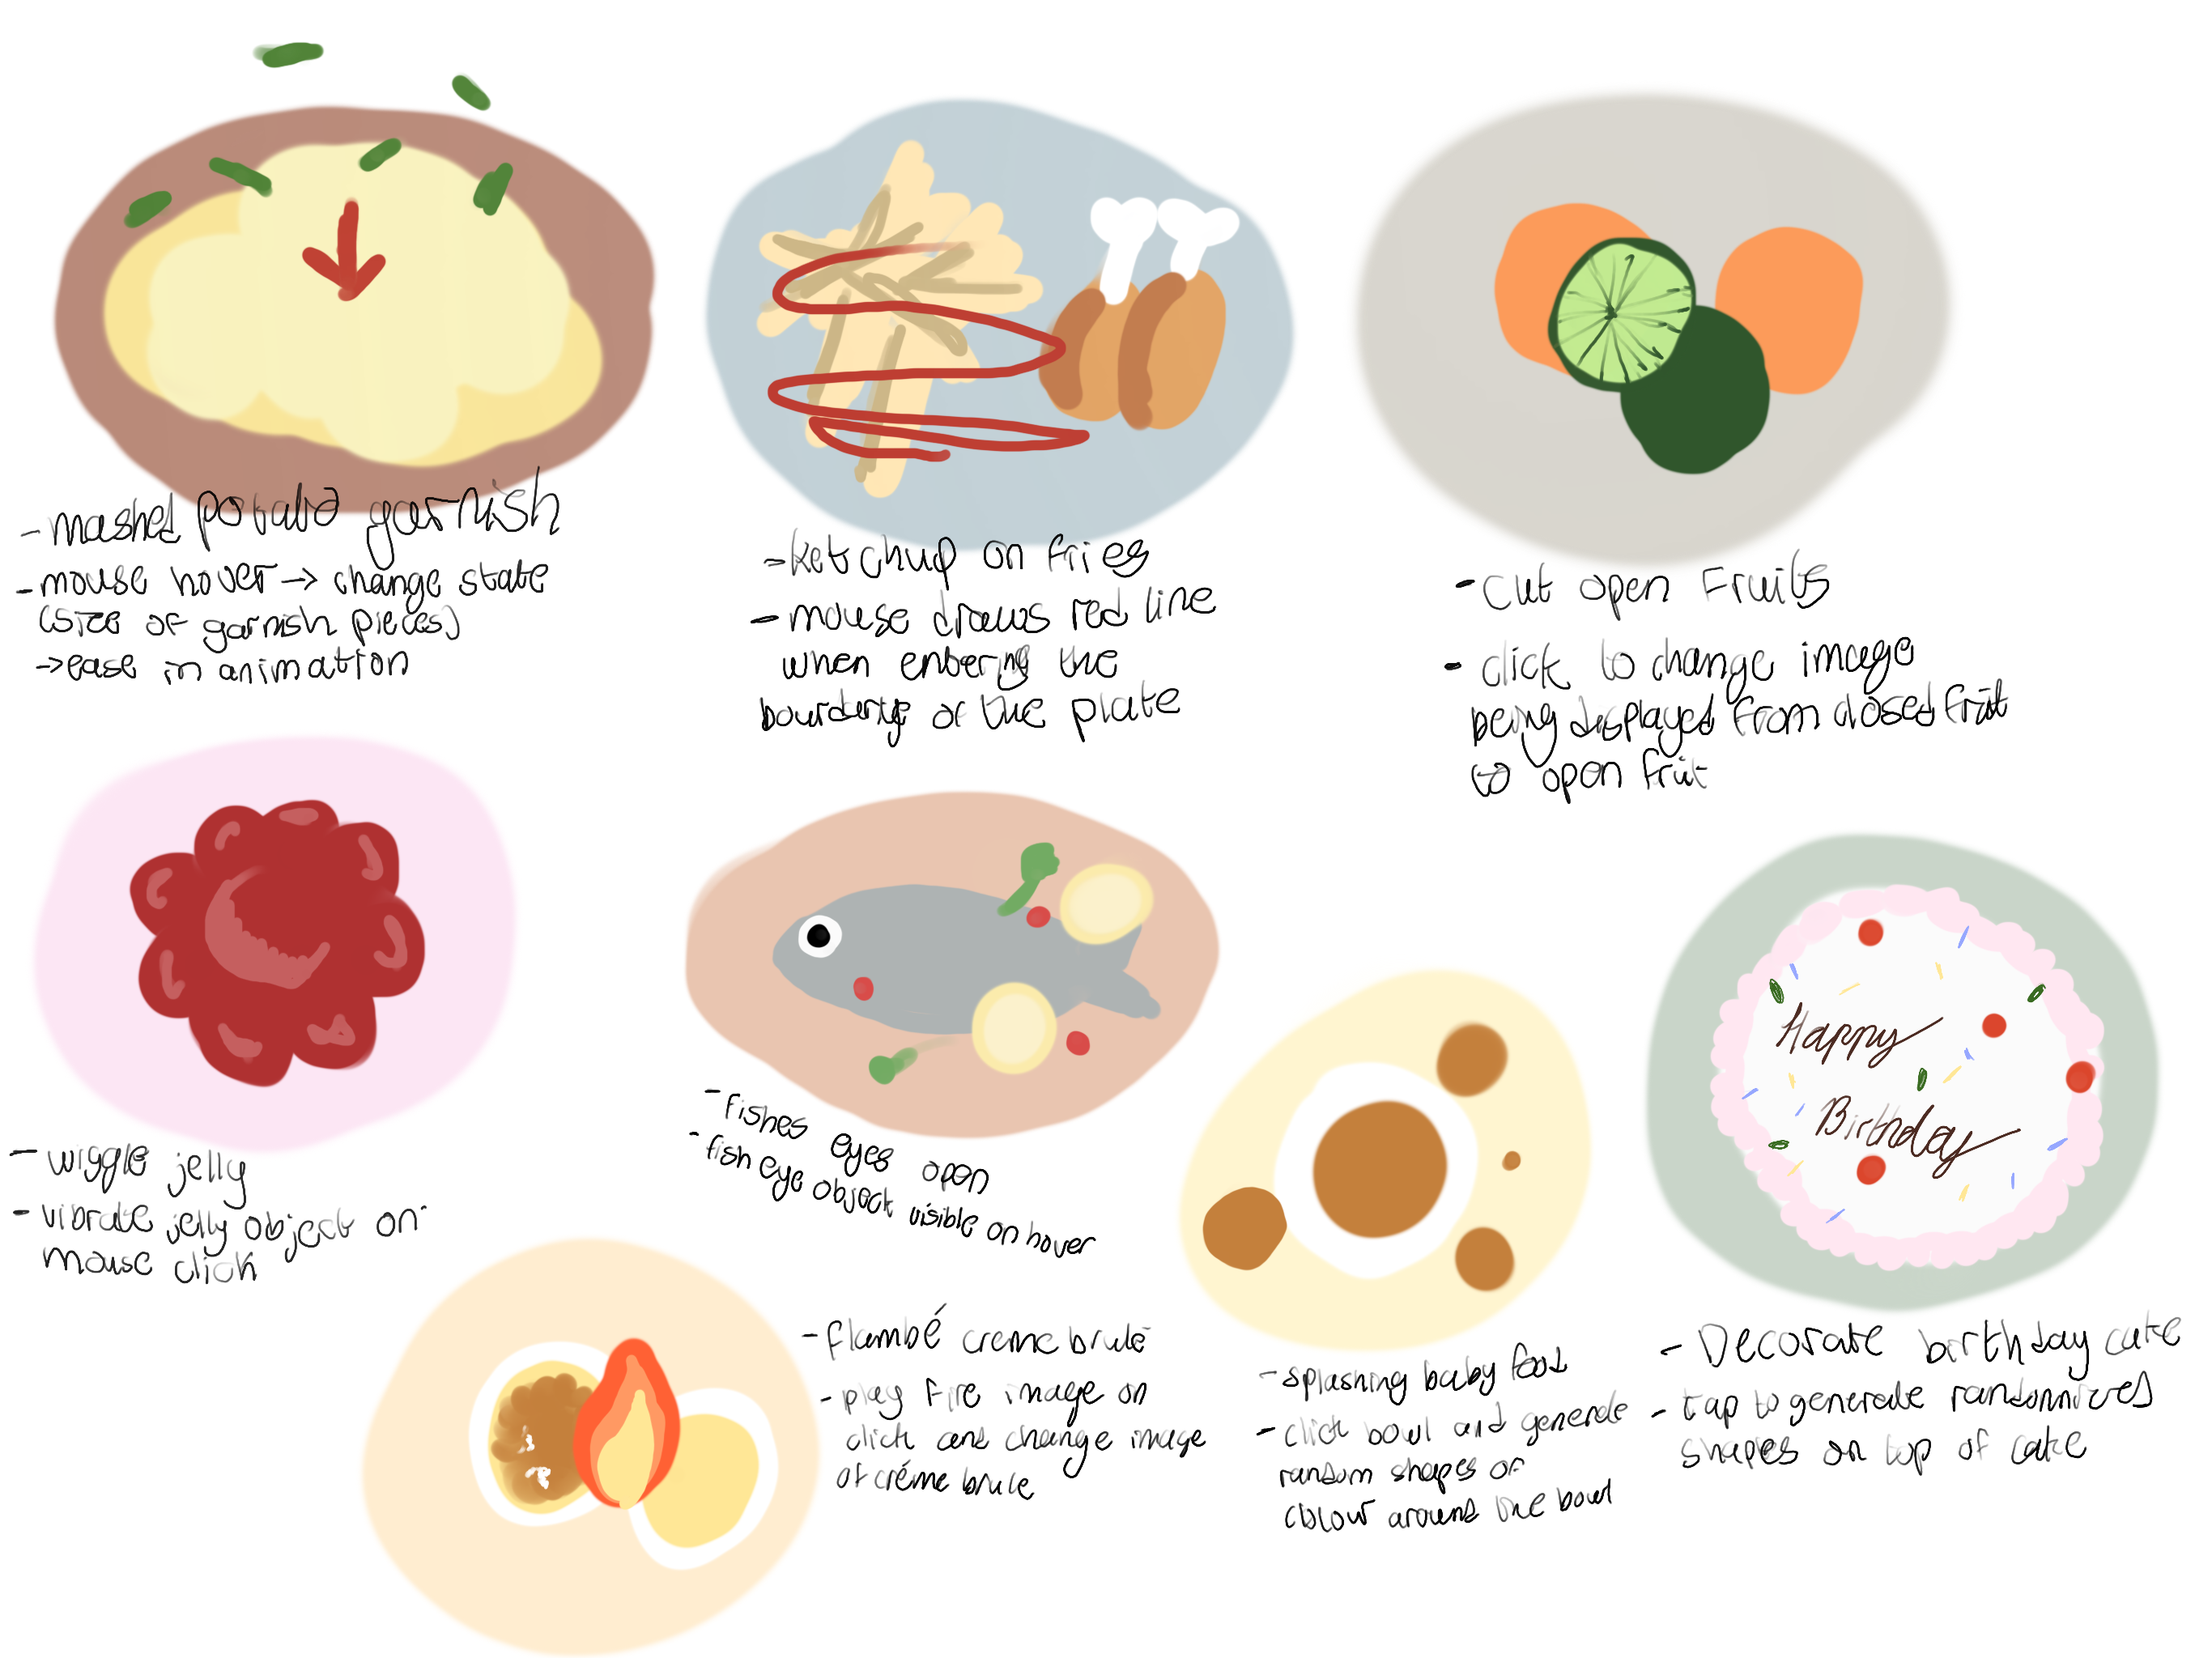 - mashed potato garnish
- mouse hover → change state
(size of garnish pieces)
→ ease in animation
- ketchup on fries
- mouse draws red line
when entering the
of the plate
- cut open fruits
- click to change image
being displayed from closed fruit
to open fruit
- wiggle jelly
- vibrate jelly object on
mouse click
- fishes eyes open
- fish eye object visible on hover
Happy
Birthday
- flambé creme brulé
- play fire image on
click and change image
of créme brule
- splashing baby food
- click bowl and generate
random shapes of
colour around the bowl
- Decorate birthday cake
- tap to generate randomnized
shapes on top of cake